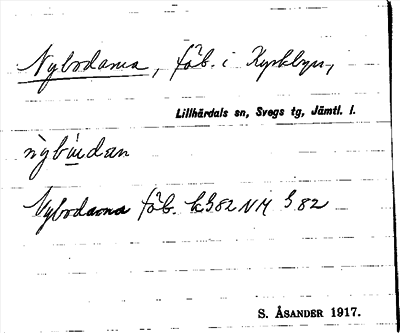 Nybodarna, fäb. i Kyrkbyn,
Lillhärdals sn, Svegs tg, Jämtl. l.
Nybodarna fäb. k382 NM 382
S. ÅSANDER 1917.